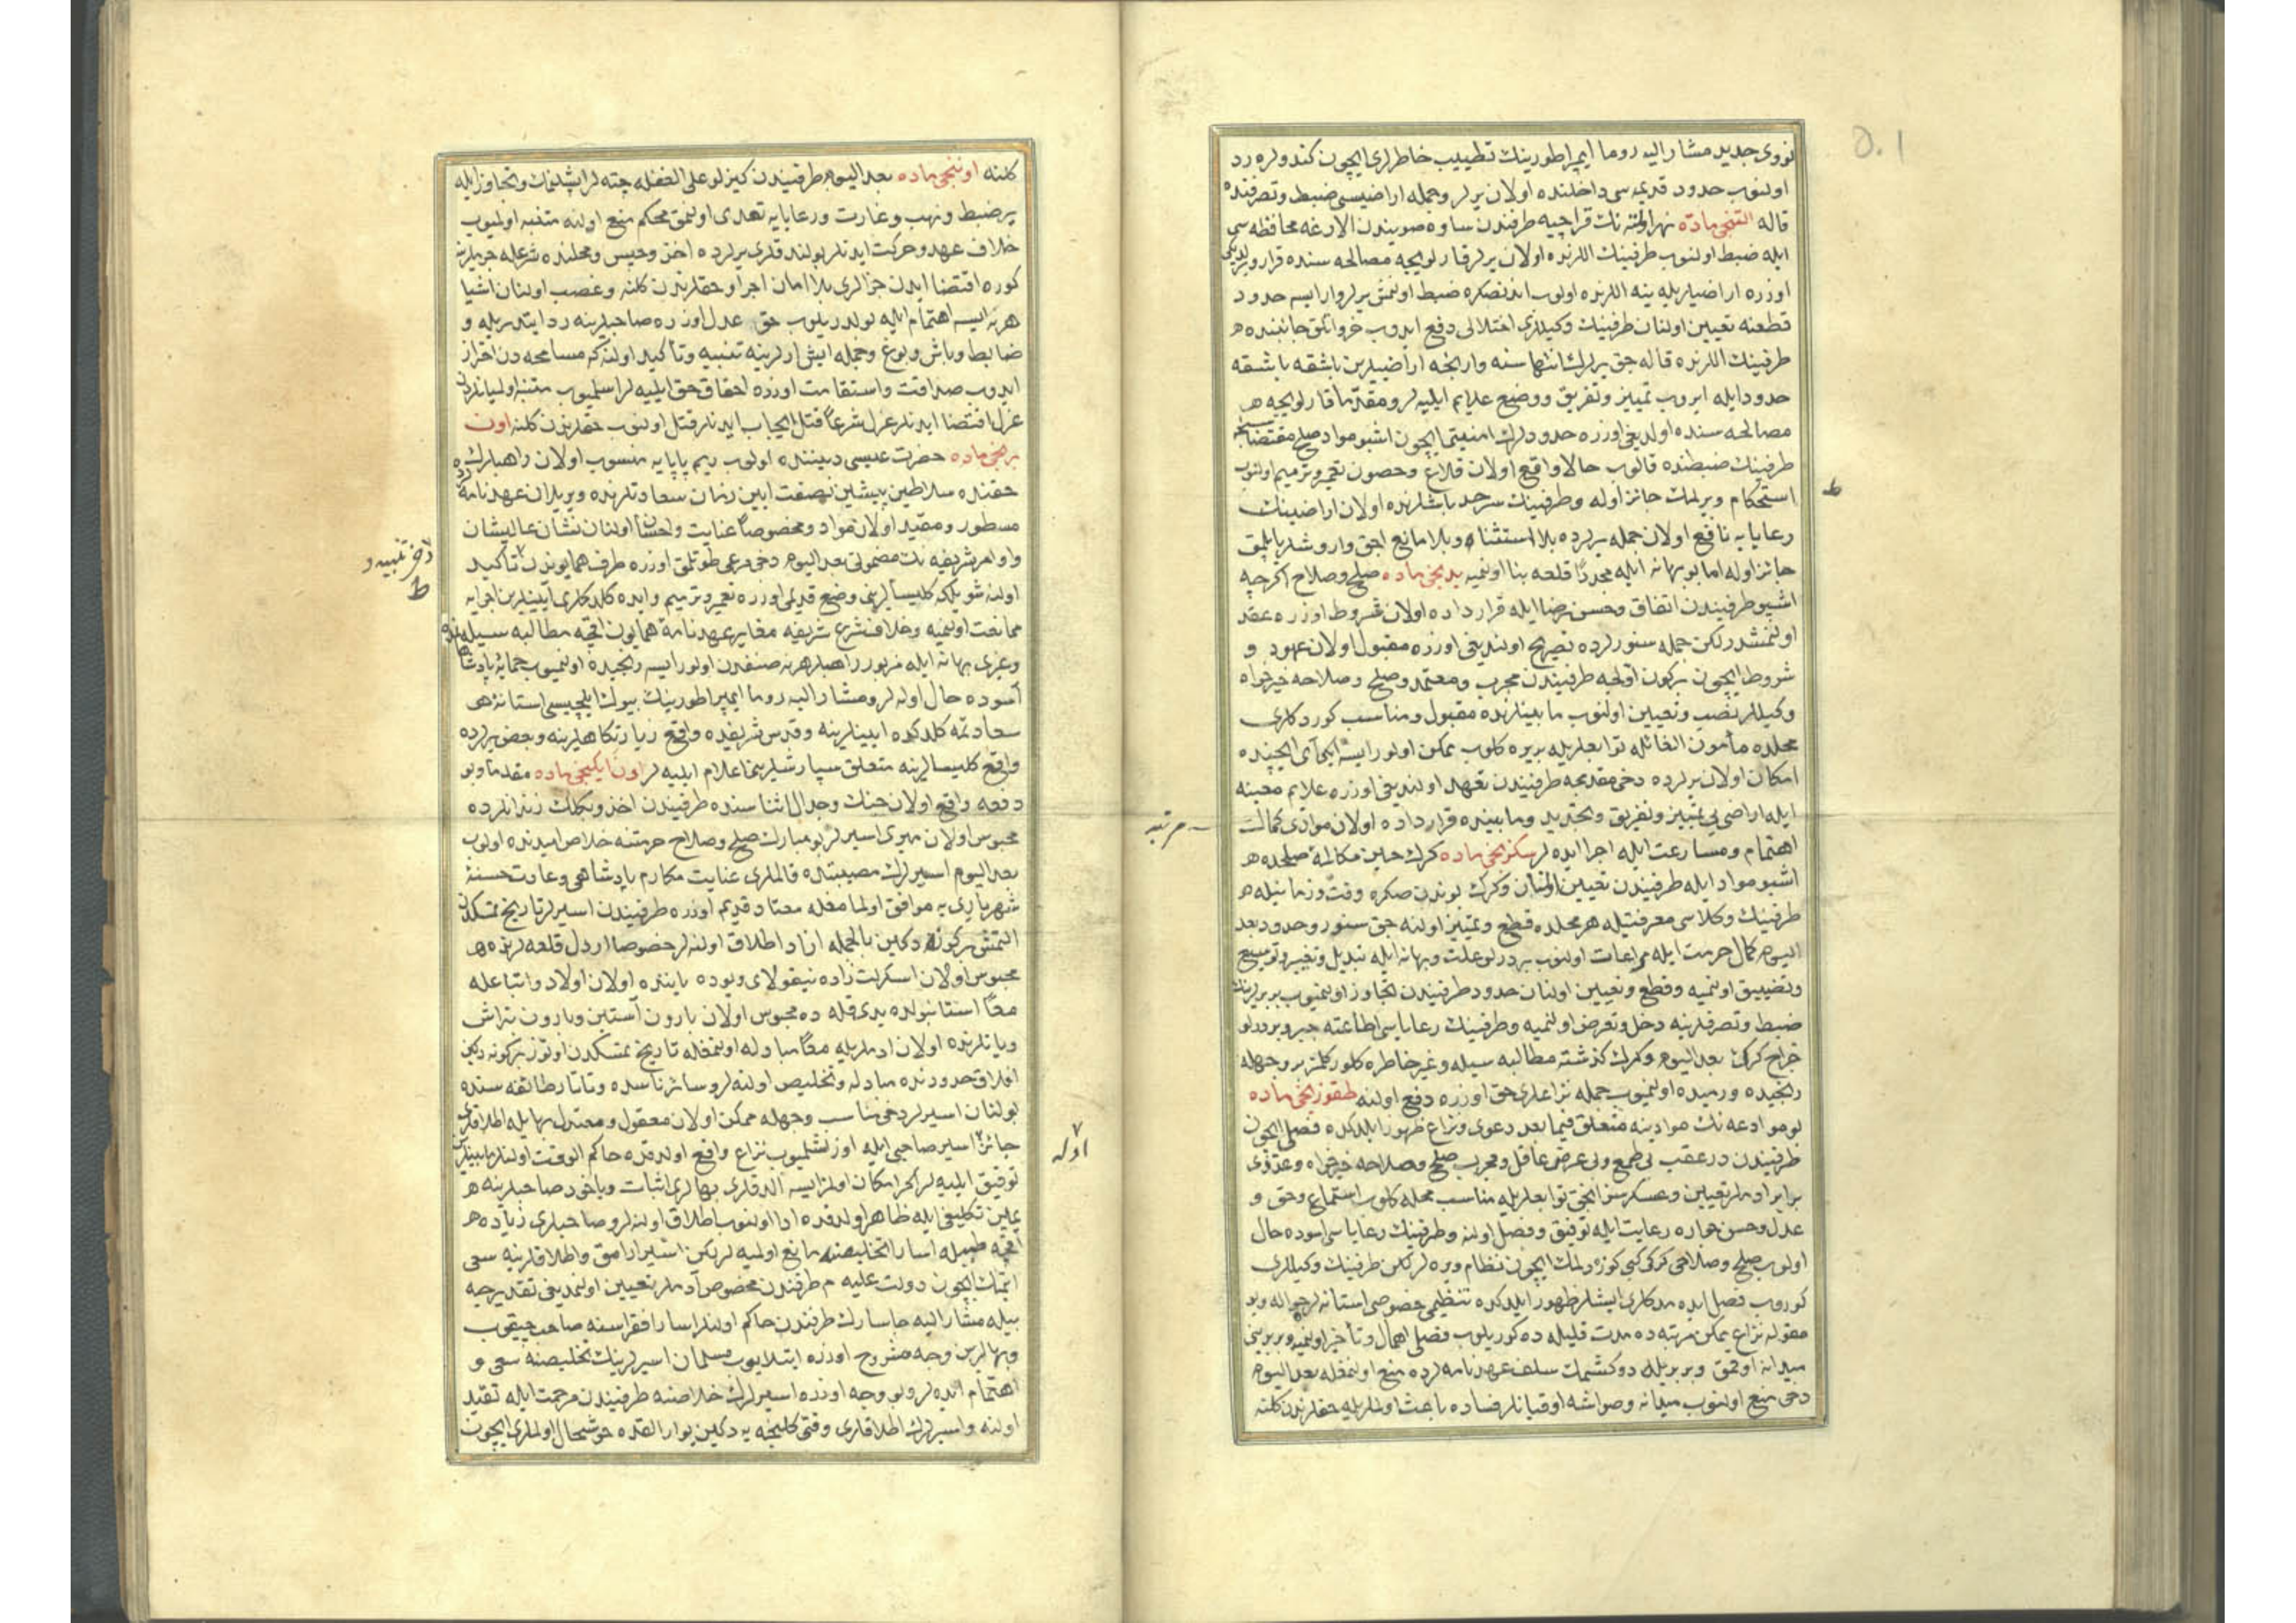 نووی جدید مشار الیه روما ایمپراطورینك تطییب خاطرلری ایچون كندولره رد
اولنوب حدود قدیمه سی داخلنده اولان یرلر وجمله اراضیسی ضبط وتصرفنده
قاله التنجی ماده نهر اونّه نك قراجیه طرفندن ساوه صویندن الارغه محافظه سی
ایله ضبط اولنوب طرفینك اللرنده اولان یرلر قارلویجه مصالحه سنده قرار ویردیكی
اوزره اراضیلریله ینه اللرنده اولوب اندنصكره ضبط اولنمش یرلر وار ایسه حدود
قطعنه تعیین اولنان طرفینك وكیللری اختلالی دفع ایدوب خرواتلق جانبنده
طرفینك اللرنده قاله جق یرلرك انتهاسنه وارنجه اراضیلرین باشقه باشقه
حدود ایله ایروب تمییز وتفریق ووضع علایم ایلیه لر ومقدّما قارلویجه
مصالحه سنده اولدیغی اوزره حدودلرك امنیتی ایچون اشبو مواد صلح مقتضاسنجه
طرفینك ضبطنده قالوب حالا واقع اولان قلاع وحصون تعمیر وترمیم اولنوب
استحكام ویرلمك جائز اوله وطرفینك سرحد باشلرنده اولان اراضینك
رعایایه نافع اولان جمله یرلرده بلا استثناء وبلا مانع اچق واروشلر یاپلمق
جائز اوله اما بو بهانه ایله مجددًا قلعه بنا اولنمیه یدنجی ماده صلح وصلاح اكرچه
اشبو طرفیندن اتفاق وحسن رضا ایله قرارداده اولان شروط اوزره عقد
اولنمشدر لكن جمله سنورلرده تصریح اولندیغی اوزره مقبول اولان عهود و
شروط ایچون بركون اولجه طرفیندن مجرب ومعتمد وصلح وصلاحه خیرخواه
وكیللر نصب وتعیین اولنوب مابینلرنده مقبول ومناسب كوردكلری
محلده مأمون الغائله توابعلریله بریره كلوب ممكن اولور ایسه ایكی آی ایچنده
امكان اولان یرلرده دخی مقدمجه طرفیندن تعهد اولندیغی اوزره علایم معینه
ایله اراضی یی تمییز وتفریق وتحدید ومابینده قرارداده اولان موادّی كمال
اهتمام ومسارعت ایله اجرا ایده لر سكزنجی ماده كرك حین مكالمۀ صلحده
اشبو مواد ایله طرفیندن تعیین اولنان وكرك بوندن صكره وقت وزمانیله
طرفینك وكلاسی معرفتیله هر محلده قطع وتمییز اولنه جق سنور وحدود بعد
الیوم كمال حرمت ایله مراعات اولنوب بر درلو علت وبهانه ایله تبدیل وتغییر وتوسیع
وتضییق اولنمیه وقطع وتعیین اولنان حدود طرفیندن تجاوز اولنمیوب بربرلرینك
ضبط وتصرفلرینه دخل وتعرض اولنمیه وطرفینك رعایاسی اطاعته جبر وبر درلو
خراج كرك بعد الیوم وكرك كذشته مطالبه سیله وغیر خاطره كلور كلمز بر وجهله
رنجیده ورمیده اولنمیوب جمله نزاعلری حق اوزره دفع اولنه طقوزنجی ماده
بو موادعه نك موادینه متعلق فیما بعد دعوی ونزاع ظهور ایلدكده فصلی ایچون
طرفیندن در عقب بی طمع وبی غرض عاقل ومجرب صلح وصلاحه خیرخواه وعددی
برابر ادملر تعیین وعسكرسز انجق توابعلریله مناسب محله كلوب استماع وحق و
عدل وحسن جواره رعایت ایله توفیق وفصل اولنه وطرفینك رعایاسی اسوده حال
اولوب صلح وصلاحی كركی كبی كوزه دلمك ایچون نظام ویره لر لكن طرفینك وكیللری
كوروب فصل ایده مدكلری ایشلر ظهور ایلدكده تنظیمی خصوصی استانه لره حواله وبو
مقوله نزاع ممكن مرتبه ده مدت قلیله ده كوریلوب فصلی اهمال وتأخیر اولنمیه وبربرینی
میدانه اوقمق وبربریله دوكشمك سلف عهدنامه لرده منع اولنمغله بعد الیوم
دخی منع اولنوب میدانه وصواشه اوقیانلر فساده باعث اولملریله حقلرندن كلنه
ط
مرتبه
كلنه اوننجی ماده بعد الیوم طرفیندن كیزلو علی الغفله چته لر اشلمك وتجاوز ایله
یر ضبط ونهب وغارت ورعایایه تعدی اولنمق محكم منع اولنه متنبه اولمیوب
خلاف عهد وحركت ایدنلر بولندقلری یرلرده اخذ وحبس ومحلنده شرعله جرملرینه
كوره اقتضا ایدن جزالری بلا امان اجرا وحقلرندن كلنه وغصب اولنان اشیا
هر نه ایسه اهتمام ایله بولدریلوب حق عدل اوزره صاحبلرینه رد ایتدریله و
ضابط وباش وبوغ وجمله ایش ارلرینه تنبیه وتأكید اولنه كه مسامحه دن احتراز
ایدوب صداقت واستقامت اوزره احقاق حق ایلیه لر اسلمیوب متنبه اولمیانلردن
عزل اقتضا ایدنلر عزل شرعًا قتل ایجاب ایدنلر قتل اولنوب حقلرندن كلنه اون
برنجی ماده حضرت عیسی دیننده اولوب ریم پاپایه منسوب اولان راهبلرك
حقنده سلاطین پیشین نصفت آیین زمان سعادتلرنده ویریلان عهدنامه لرده
مسطور ومقید اولان مواد ومخصوصًا عنایت واحسان اولنان نشان عالیشان
واوامر شریفه نك مضمونی بعد الیوم دخی مرعی طوتلق اوزره طرف همایوندن تأكید
اولنه شویله كه كلیسالرینی وضع قدیمی اوزره تعمیر وترمیم وایده كلدكلری آیینلرین اجرایه
ممانعت اولنمیه وخلاف شرع شریف مغایر عهدنامۀ همایون اقچه مطالبه سیله
وغیری بهانه ایله مزبور راهبلر هر نه صنفدن اولور ایسه رنجیده اولنمیوب حمایۀ پادشاهانه
آسوده حال اوله لر ومشار الیه روما ایمپراطورینك بیوك ایلچیسی استانۀ
سعادتمه كلدكده آیینلرینه وقدس شریفده واقع زیارتكاهلرینه وبعض یرلرده
واقع كلیسالرینه متعلق سپارشلرینی اعلام ایلیه لر اون ایكنجی ماده مقدما وبو
دفعه واقع اولان جنك وجدال اثناسنده طرفیندن اخذ وبكلك زندانلرده
محبوس اولان میری اسیرلر بو مبارك صلح وصلاح حرمتنه خلاص امیدنده اولوب
بعد الیوم اسیرلرك مصیبتده قالملری عنایت مكارم پادشاهی وعادت حسنۀ
شهریاری یه موافق اولمامغله معتاد قدیم اوزره طرفیندن اسیرلر تاریخ تمسكدن
التمش بركونه دكین بالجمله ازاد اطلاق اولنه لر خصوصا اردل قلعه لرنده
محبوس اولان اسكرلت زاده نیقولای ویوده یاننده اولان اولاد واتباعله
معًا استانبولده یدی قله ده محبوس اولان بارون آستین وبارون تراش
ویانلرنده اولان ادملریله معًا مبادله اولنمغله تاریخ تمسكدن اوتوز بركونه دكین
افلاق حدودنده مبادله وتخلیص اولنه لر وسائر ناسده وتاتار طائفه سنده
بولنان اسیرلر دخی مناسب وجهله ممكن اولان معقول ومعتدل بها ایله اطلاقلری
جائز اسیر صاحبی ایله اوزلشلمیوب نزاع واقع اولدقده حاكم الوقت اولنلر مابینلرین
توفیق ایلیه لر اكر امكان اولمز ایسه الدقلری بهالری اثبات ویاخود صاحبلرینه
یمین تكلیفی ایله ظاهر اولدقده ادا اولنوب اطلاق اولنه لر وصاحبلری زیاده
اقچه طمعیله اسارا تخلیصنه مانع اولمیه لر لكن اسیر ارامق واطلاقلرینه سعی
ایتمك ایچون دولت علیه م طرفندن مخصوص آدملر تعیین اولنمدیغی تقدیرجه
بیله مشار الیه چاسارك طرفندن حاكم اولنلر اسارا فقراسنه صاحب چیقوب
وبهالرین وجه مشروح اوزره ابتلایوب مسلمان اسیرلرینك تخلیصنه سعی و
اهتمام ایده لر وبو وجه اوزره اسیرلرك خلاصنه طرفیندن مرحمت ایله تقید
اولنه واسیرلرك اطلاقلری وقتی كلنجه یه دكین بو ارالقده خوشحال اولملری ایچون
تنبیه و
ط
اوله